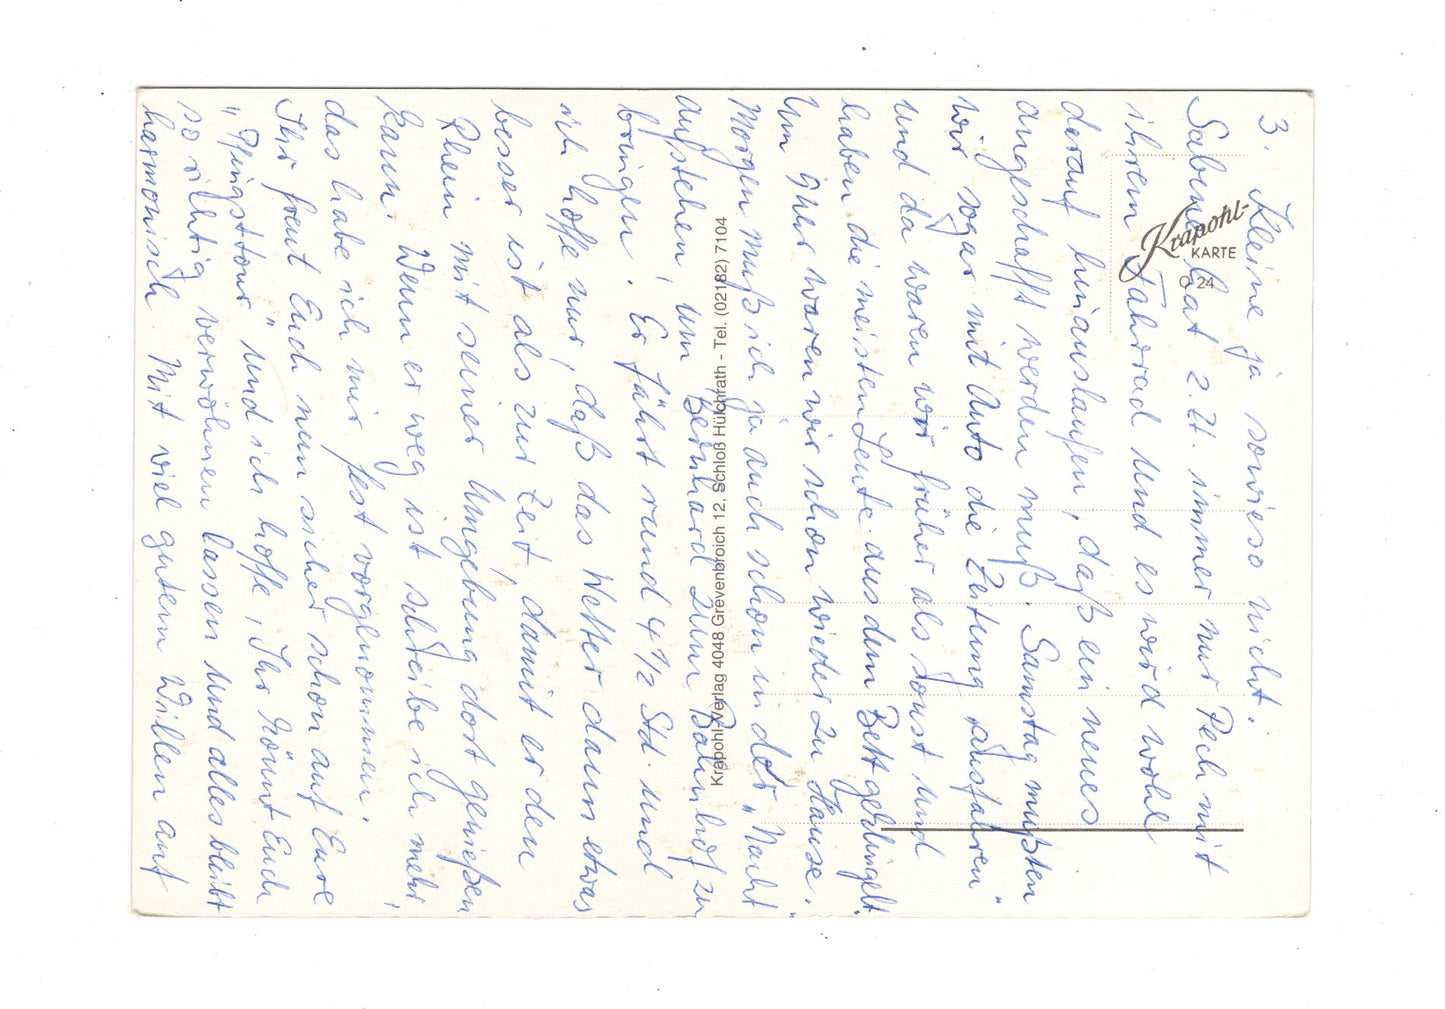 3.
Kleine ja sowieso nicht.
Sabine hat z.Zt. immer nur Pech mit
ihrem Fahrrad und es wird wohl
darauf hinauslaufen, daß ein neues
angeschafft werden muß. Samstag mußten
wir sogar mit Auto die Zeitung ausfahren
und da waren wir früher als sonst und
haben die meisten Leute aus dem Bett geklingelt.
Um Uhr waren wir schon wieder zu Hause.
Morgen muß ich ja auch schon in der „Nacht"
aufstehen, um Bernhard zum Bahnhof zu
bringen. Er fährt rund 4 1/2 Std. und
ich hoffe nur, daß das Wetter dann etwas
besser ist als zur Zeit, damit er den
Rhein mit seiner Umgebung dort genießen
kann. Wenn er weg ist schreibe ich mehr,
das habe ich mir fest vorgenommen.
Ihr freut Euch nun sicher schon auf Eure
„Pfingsttour" und ich hoffe, Ihr könnt Euch
so richtig verwöhnen lassen und alles bleibt
harmonisch. Mit viel gutem Willen auf
Krapohl-
KARTE
O 24
Krapohl-Verlag 4048 Grevenbroich 12, Schloß Hülchrath - Tel. (02182) 7104